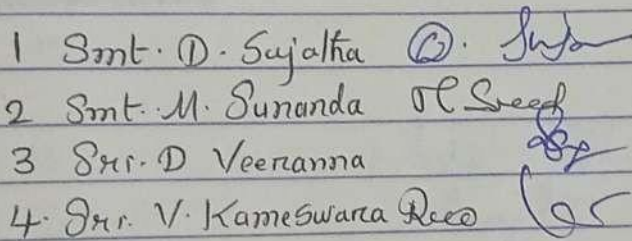 1 Smt. D. Sujatha D. Suja
2 Smt. M. Sunanda
3 Sri. D Veeranna
4. Sri. V. Kameswara Rao